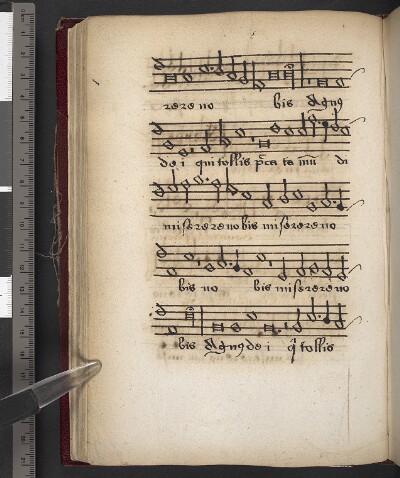 rere no bis Agnus
de i qui tollis pcca ta mu di
miserere nobis miserere no
bis no bis miserere no
bis Agnus de i q tollis